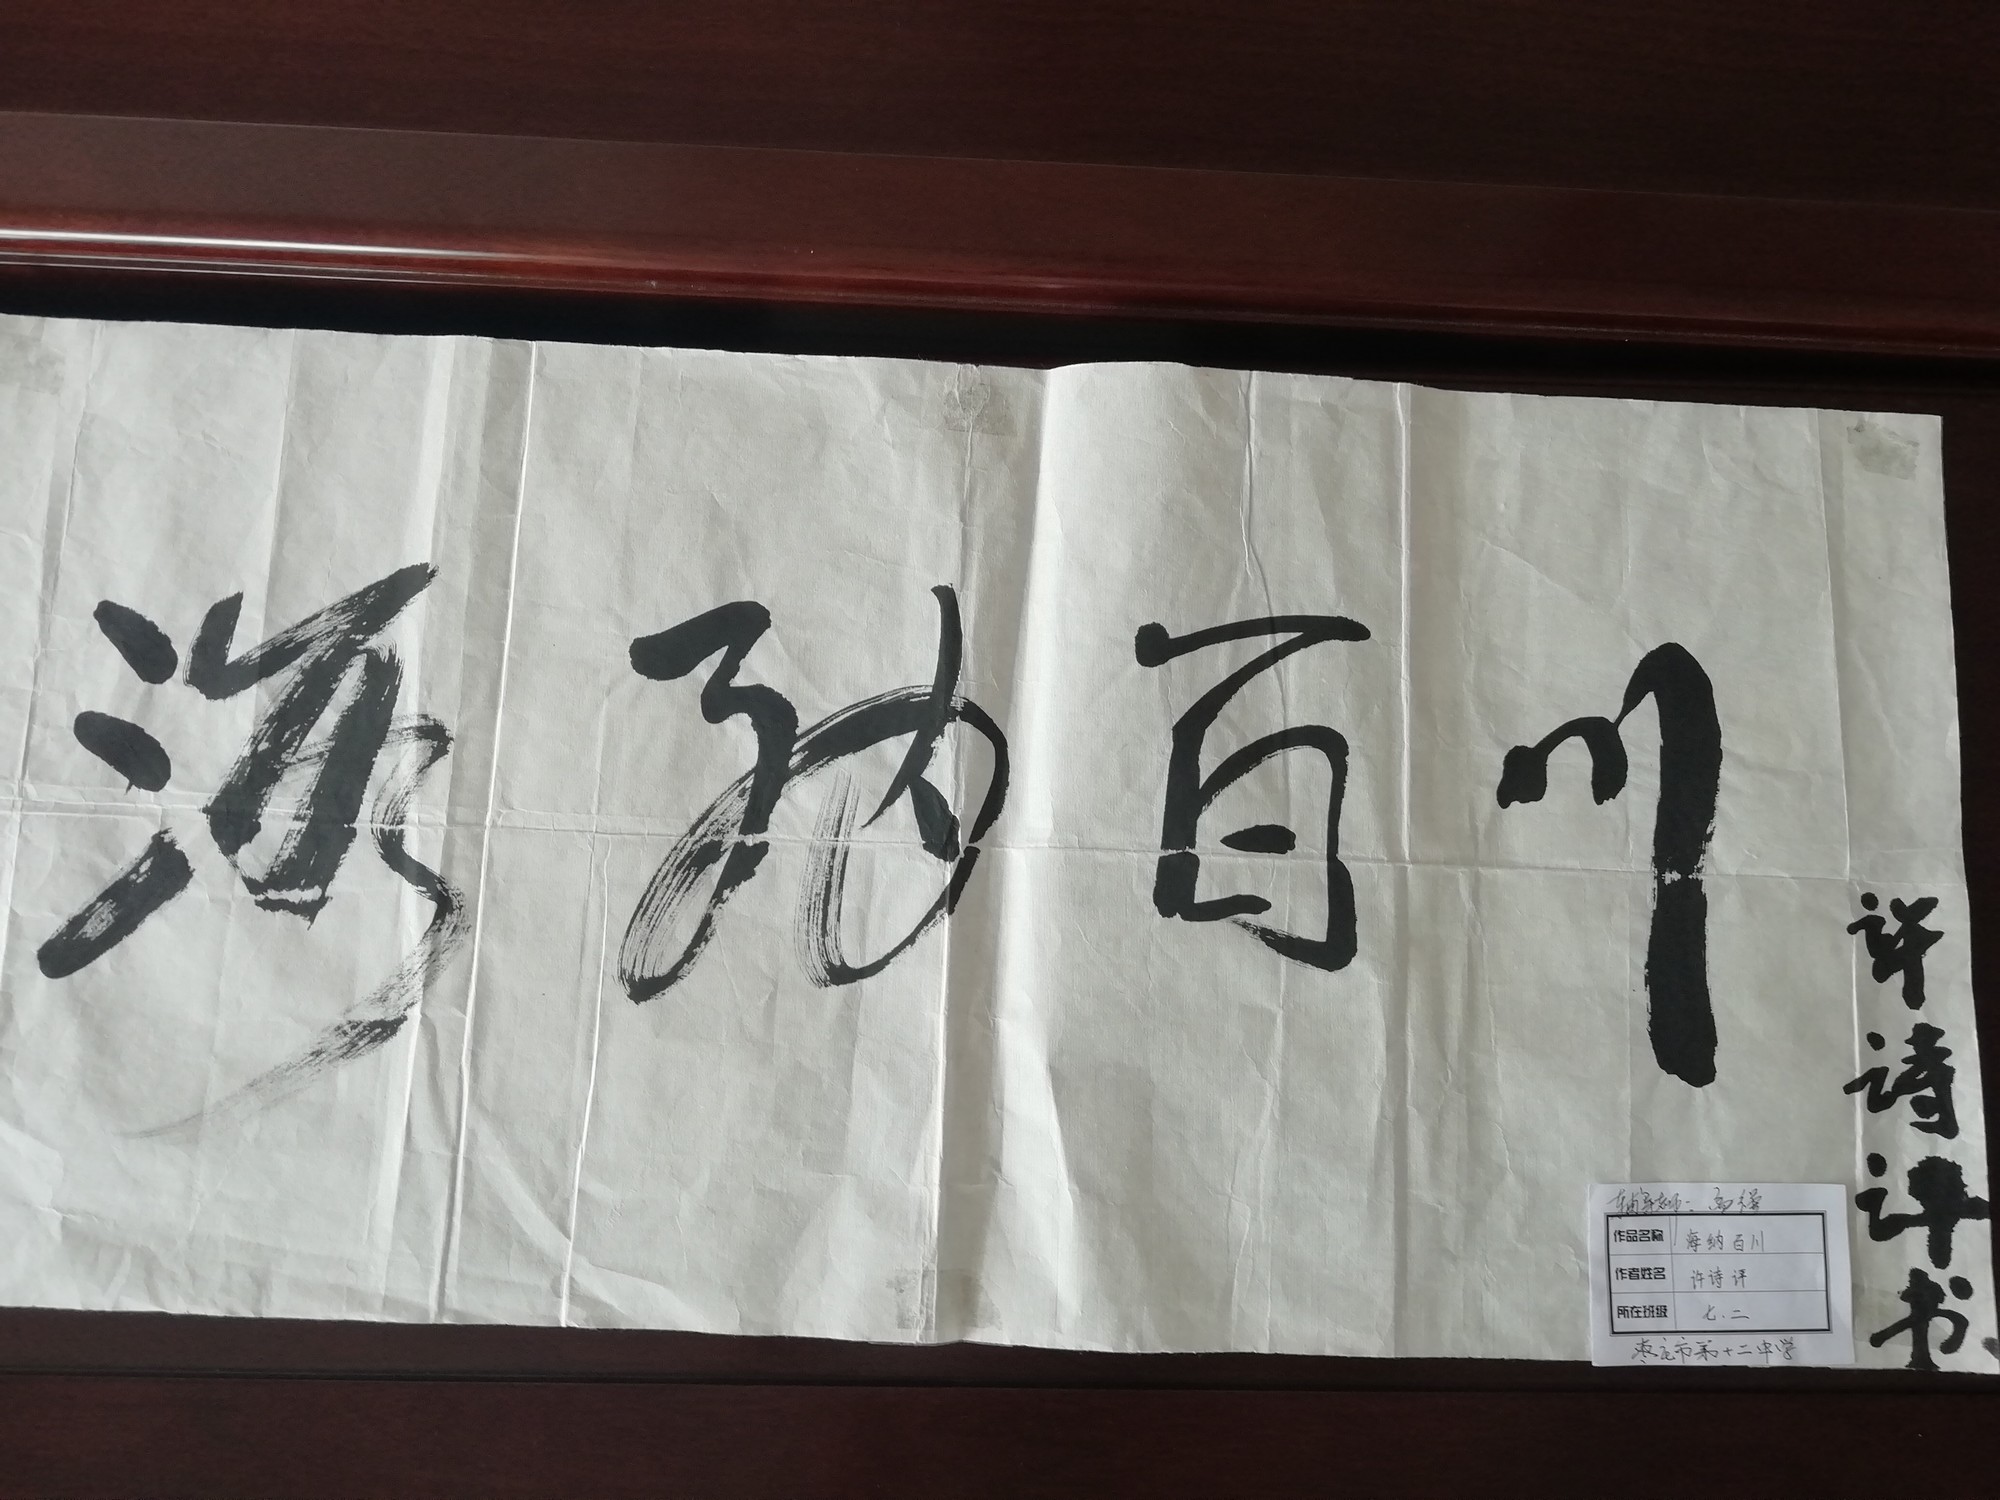 海纳百川
许诗评书
辅导老师：
作品名称 海纳百川
作者姓名 许诗评
所在班级 七.二
枣庄市第十二中学